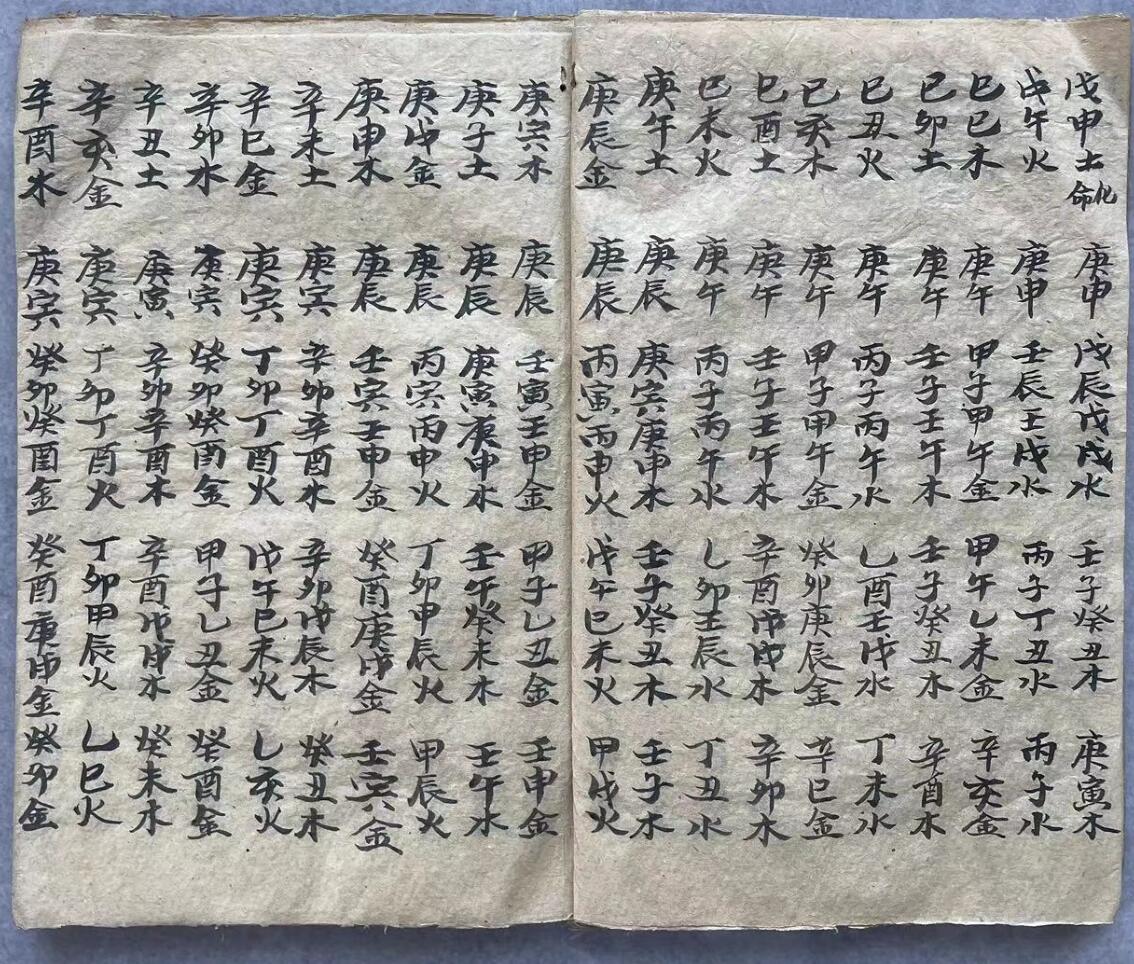 戊申土化命 庚申 戊辰戊戌水 壬子癸丑木 庚寅木
戊午火 庚申 壬辰壬戌水 丙子丁丑水 丙子水
己巳木 庚午 甲子甲午金 甲午乙未金 辛亥金
己卯土 庚午 壬子壬午木 壬子癸丑木 辛酉木
己丑火 庚午 丙子丙午水 乙酉壬戌水 丁未水
己亥木 庚午 甲子甲午金 癸卯庚辰金 辛巳金
己酉土 庚午 壬子壬午木 辛酉戊戌木 辛卯木
己未火 庚午 丙子丙午水 乙卯壬辰水 丁丑水
庚午土 庚辰 庚寅庚申木 壬子癸丑木 壬子木
庚辰金 庚辰 丙寅丙申火 戊午己未火 甲戌火
庚寅木 庚辰 壬寅壬申金 甲子乙丑金 壬申金
庚子土 庚辰 庚寅庚申木 壬午癸未木 壬午木
庚戌金 庚辰 丙寅丙申火 丁卯甲辰火 甲辰火
庚申木 庚辰 壬寅壬申金 癸酉庚戌金 壬寅金
辛未土 庚寅 辛卯辛酉木 辛卯戊辰木 癸丑木
辛巳金 庚寅 丁卯丁酉火 戊午己未火 乙亥火
辛卯水 庚寅 癸卯癸酉金 甲子乙丑金 癸酉金
辛丑土 庚寅 辛卯辛酉木 辛酉戊戌木 癸未木
辛亥金 庚寅 丁卯丁酉火 丁卯甲辰火 乙巳火
辛酉木 庚寅 癸卯癸酉金 癸酉庚申金 癸卯金